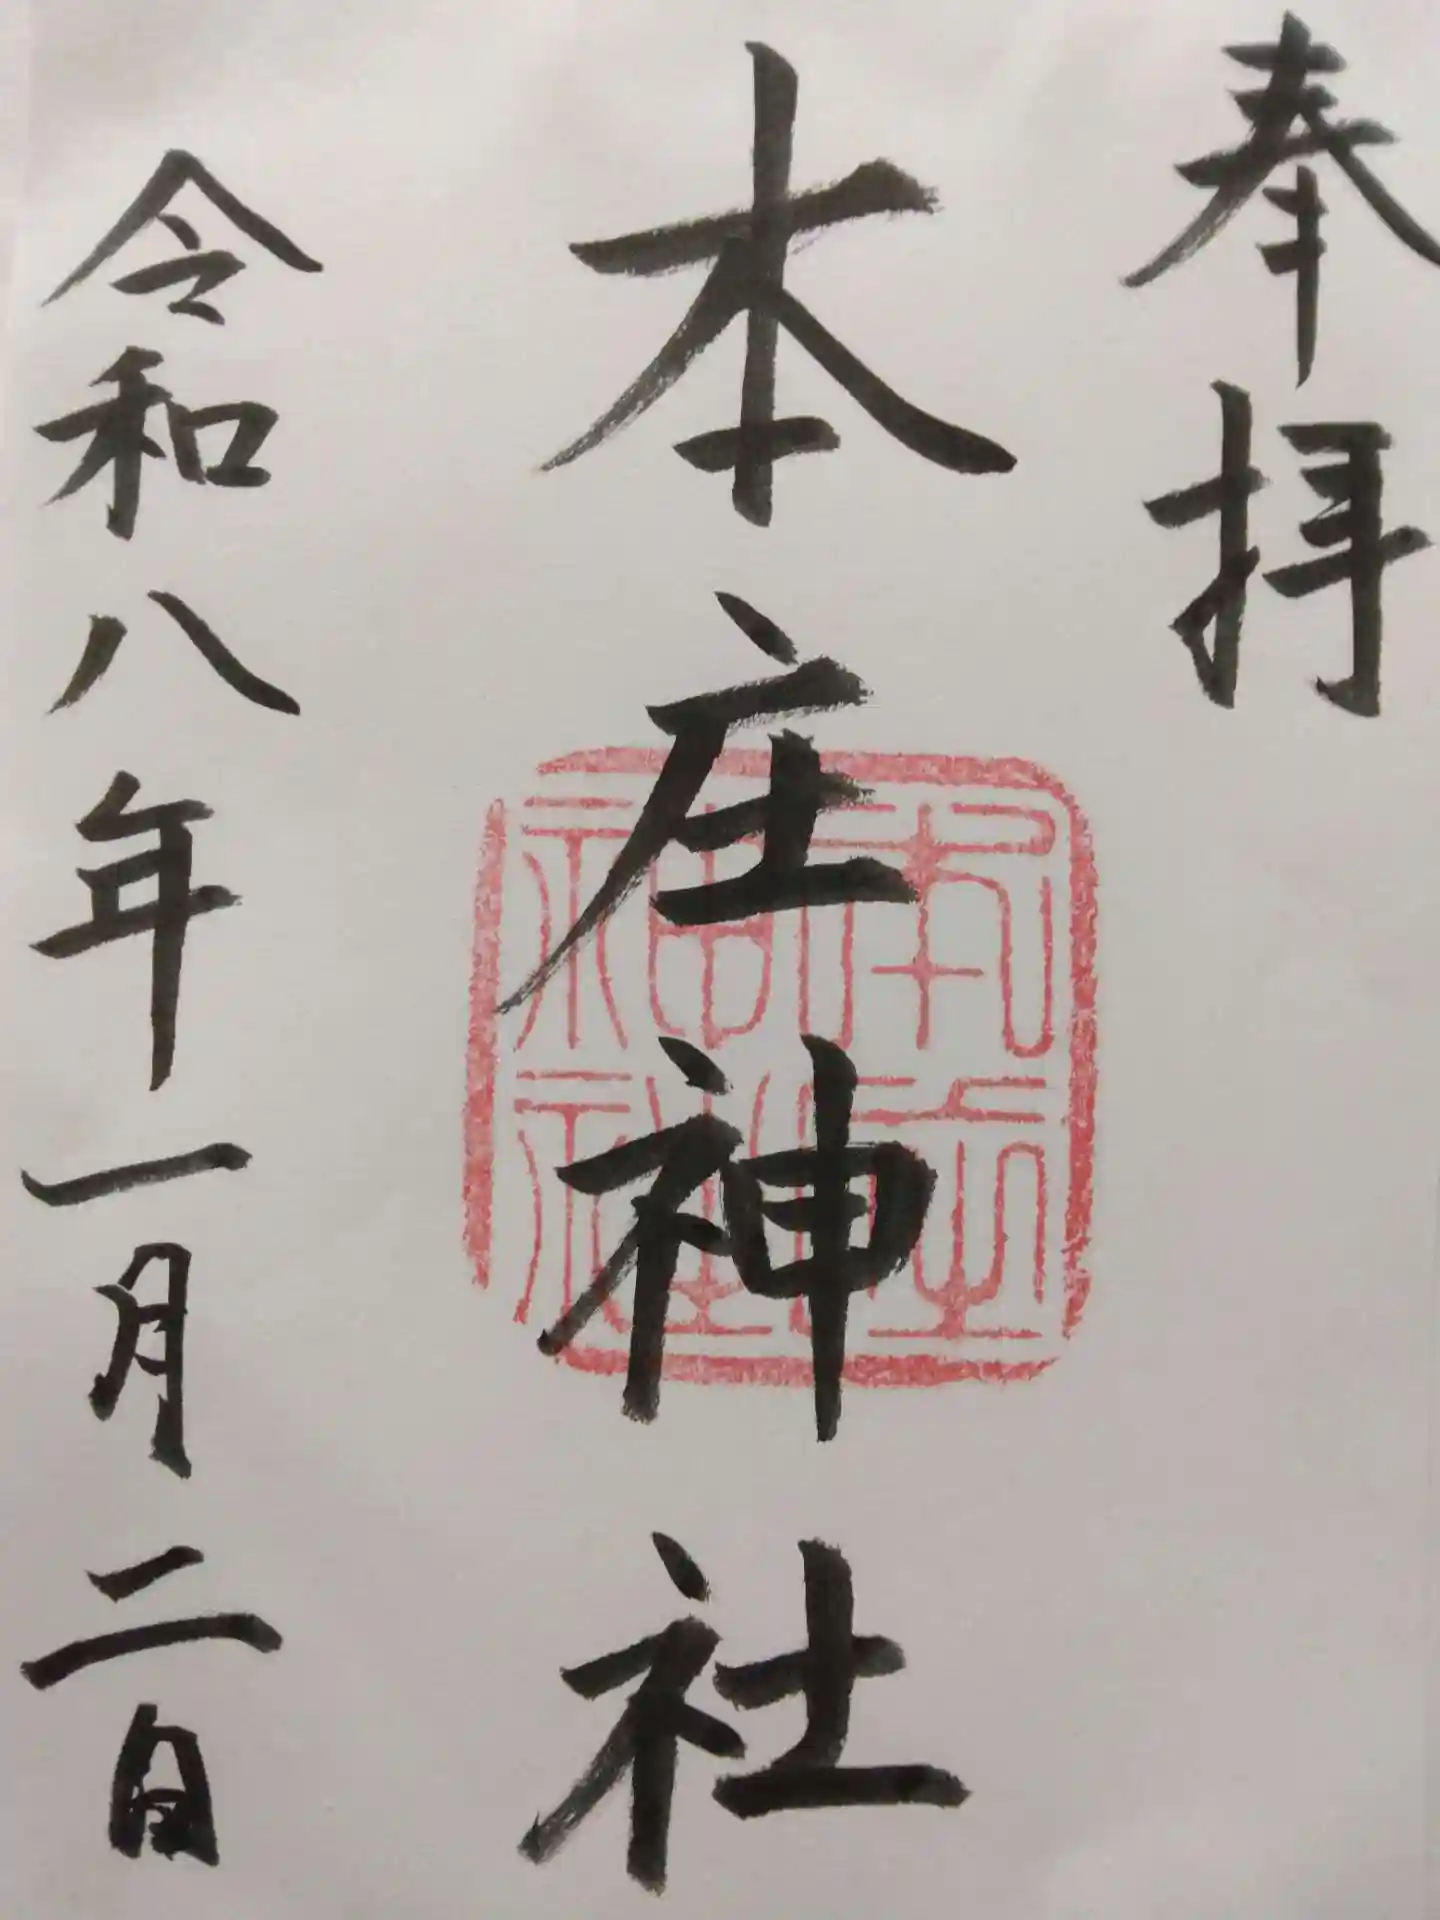 奉拝
本庄神社
令和八年一月二日
本庄
神社